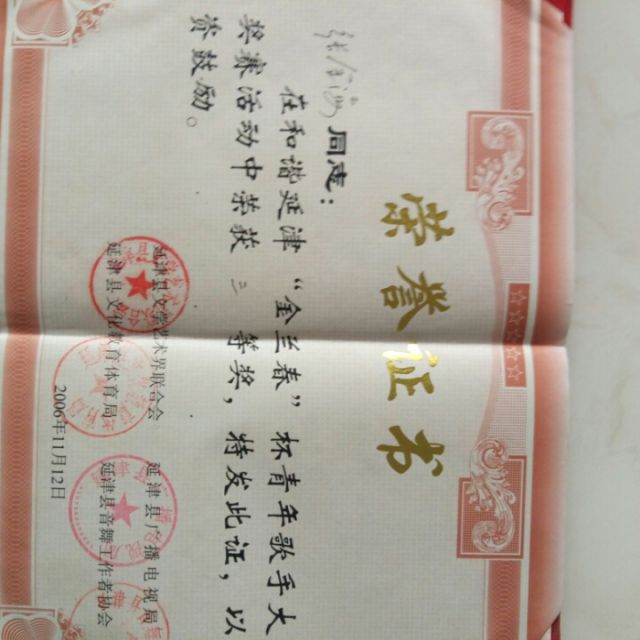 荣誉证书
张金海 同志：
在和谐延津“金兰春”杯青年歌手大
奖赛活动中荣获 三 等奖，特发此证，以
资鼓励。
延津县文学艺术界联合会 延津县广播电视局
延津县文化教育体育局 延津县音舞工作者协会
2006年11月12日